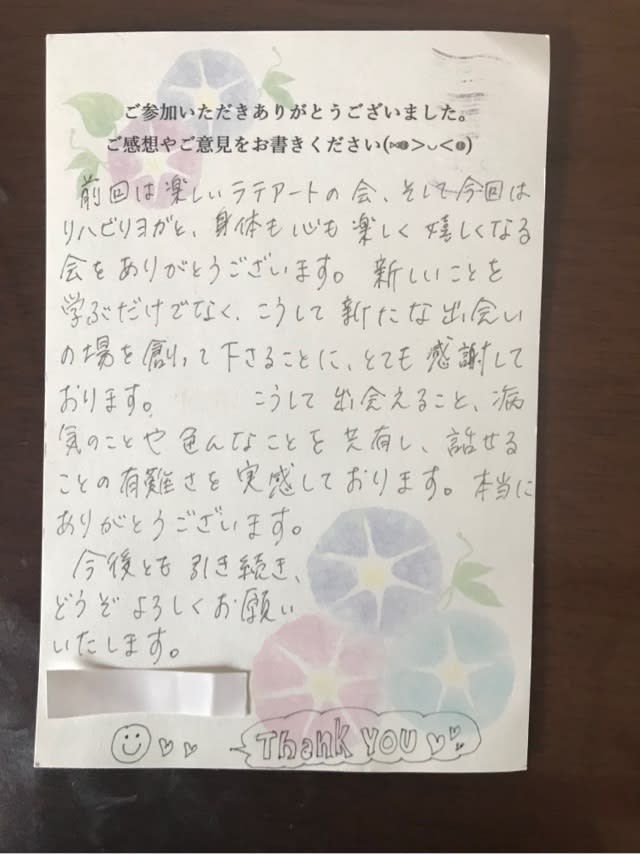 ご参加いただきありがとうございました。
ご感想やご意見をお書きください(⑅●>◡<●)
前回は楽しいラテアートの会、そして今回は
リハビリヨガと、身体も心も楽しく嬉しくなる
会をありがとうございます。新しいことを
学ぶだけでなく、こうして新たな出会い
の場を創って下さることに、とても感謝して
おります。 こうして出会えること、病
気のことや色んなことを共有し、話せる
ことの有難さを実感しております。本当に
ありがとうございます。
今後とも引き続き、
どうぞよろしくお願い
いたします。
Thank YOU